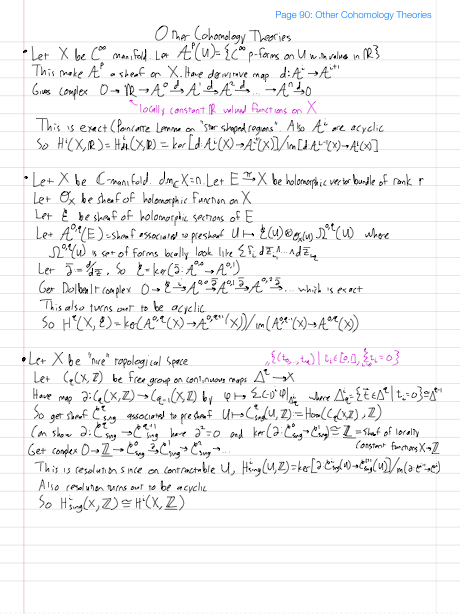 Page 90: Other Cohomology Theories
Other Cohomology Theories
• Let X be C^∞ manifold. Let A^p(U) = {C^∞ p-forms on U w values in ℝ}
This make A^p a sheaf on X. Have derivative map d: A^i → A^{i+1}
Gives complex 0 → ℝ → A^0 →d A^1 →d A^2 →d ... → A^n →d 0
locally constant ℝ valued functions on X
This is exact (Poincare Lemma on "star shaped regions". Also A^i are acyclic
So H^i(X,ℝ) = H^i_{dR}(X,ℝ) = ker[d A^i(X) → A^{i+1}(X)]/im[d A^{i-1}(X) → A^i(X)]
• Let X be ℂ-manifold. dim_ℂ X = n. Let E →π X be holomorphic vector bundle of rank r
Let O_X be sheaf of holomorphic function on X
Let ℰ be sheaf of holomorphic sections of E
Let A^{0,q}(E) = sheaf associated to presheaf U ↦ ℰ(U) ⊗_{O_X(U)} Ω^{0,q}(U) where
Ω^{0,q}(U) is set of forms locally look like Σ f_i dz̄_{i_1} ∧ ... ∧ dz̄_{i_q}
Let ∂̄ = d/dz̄, So ℰ = ker(∂̄: A^{0,0} → A^{0,1})
Get Dolbeault complex 0 → ℰ → A^{0,0} →∂̄ A^{0,1} →∂̄ A^{0,2} →∂̄ ... which is exact
This also turns out to be acyclic
So H^q(X, ℰ) = ker(A^{0,q}(X) → A^{0,q+1}(X))/im(A^{0,q-1}(X) → A^{0,q}(X))
• Let X be "nice" topological space
{(t_0, ..., t_q) | t_i ∈ [0,1], Σ t_i = 0}
Let C_q(X,ℤ) be free group on continuous maps Δ^q → X
Have map ∂: C_q(X,ℤ) → C_{q-1}(X,ℤ) by φ ↦ Σ(-1)^i φ|_{Δ^q_i} where Δ^q_i = {t ∈ Δ^q | t_i = 0} ≅ Δ^{q-1}
So get sheaf C^q_{sing} associated to presheaf U ↦ C^q_{sing}(U,ℤ) := Hom(C_q(X,ℤ), ℤ)
Can show ∂: C^q_{sing} → C^{q+1}_{sing} have ∂² = 0 and ker(∂: C^0_{sing} → C^1_{sing}) ≅ ℤ = sheaf of locally
constant functions X → ℤ
Get complex 0 → ℤ → C^0_{sing} →∂ C^1_{sing} → C^2_{sing} → ...
This is resolution since on contractable U, H^i_{sing}(U,ℤ) = ker[∂ C^i_{sing}(U) → C^{i+1}_{sing}(U)]/im(∂ C^{i-1} → C^i)
Also resolution turns out to be acyclic
So H^i_{sing}(X,ℤ) ≅ H^i(X,ℤ)